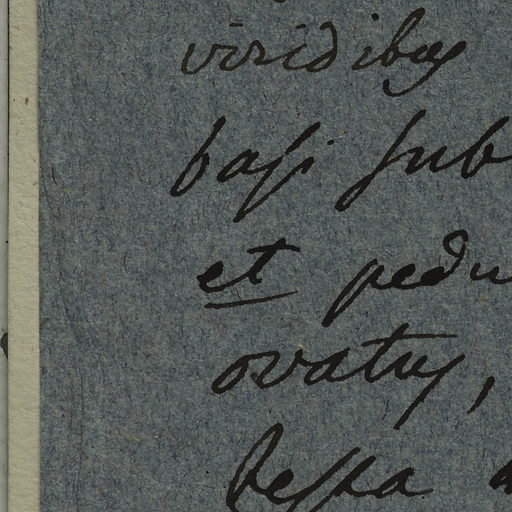 viridibus
basi sub
et pedu
ovatus,